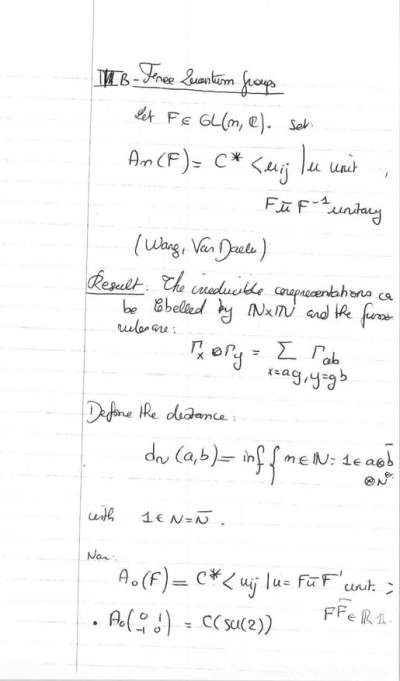 III B - Free Quantum Groups
Let F ∈ GL(n, ℂ). Set
An(F) = C* < uij | u unit ,
F ū F⁻¹ unitary
(Wang, Van Daele)
Result: The irreducible corepresentations ca
be labelled by ℕ×ℕ and the fusion
rules are:
Γx ⊗ Γy = ∑ Γab
x=ag, y=gb
Define the distance:
dN (a,b) = inf { n ∈ ℕ : 1 ∈ a⊗b̄
⊗Nⁿ
with 1 ∈ N = N̄ .
Now:
Ao(F) = C* < uij | u = F ū F⁻¹ unit. >
F F̄ ∈ ℝ 1.
• Ao(0 1
-1 0) = C(SU(2))